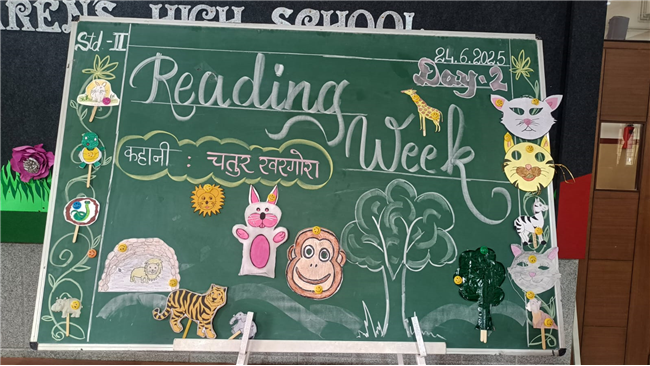 REN'S HIGH SCHOOL
Std-II
24.6.2025
Day-2
Reading
Week
कहानी : चतुर खरगोश